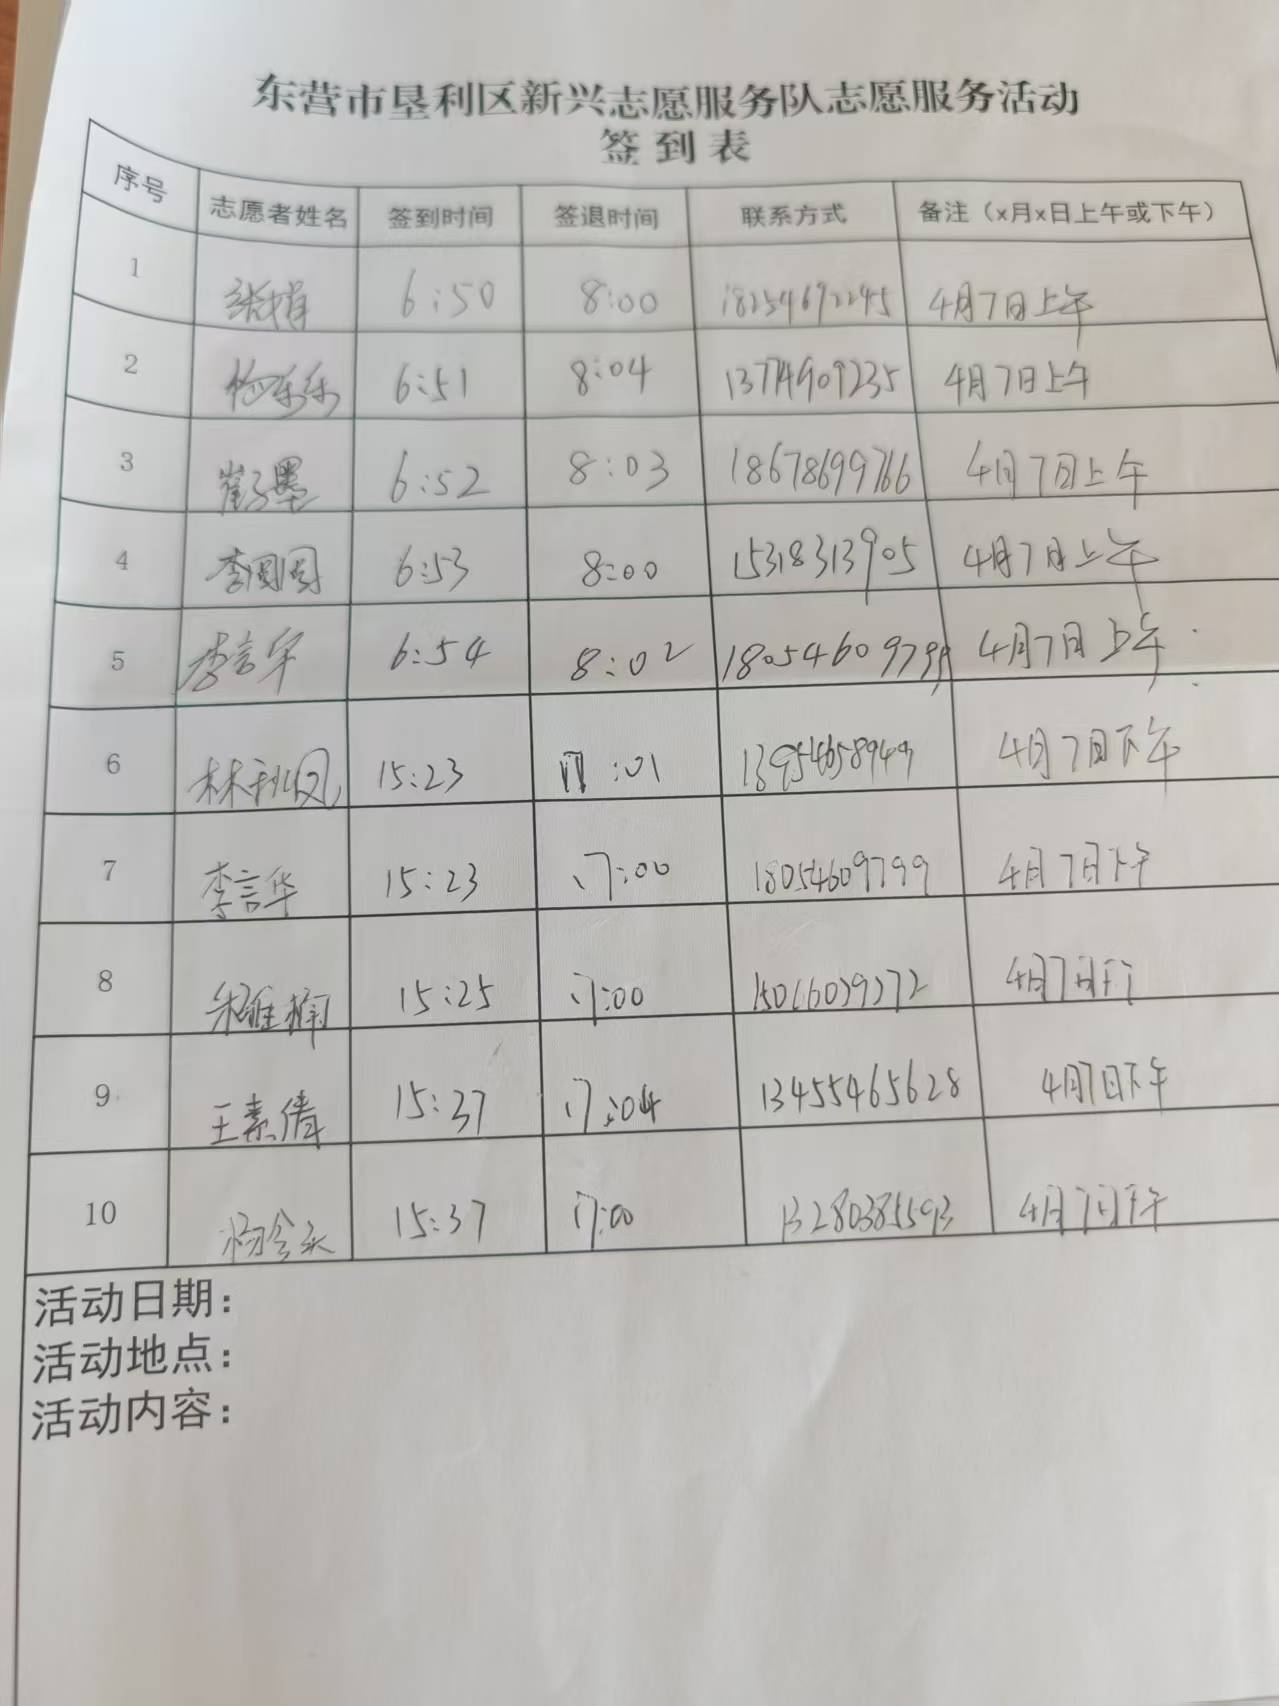 东营市垦利区新兴志愿服务队志愿服务活动
签到表
序号 志愿者姓名 签到时间 签退时间 联系方式 备注（x月x日上午或下午）
1 6:50 8:00 18254692245 4月7日上午
2 杨乐乐 6:51 8:04 13774909235 4月7日上午
3 崔子墨 6:52 8:03 18678699766 4月7日上午
4 李圆圆 6:53 8:00 15318313905 4月7日上午
5 李言华 6:54 8:02 18054609799 4月7日上午
6 林秋凤 15:23 17:01 13954658949 4月7日下午
7 李言华 15:23 17:00 18054609799 4月7日下午
8 15:25 17:00 4月7日下午
9 王素倩 15:37 17:04 13455465628 4月7日下午
10 15:37 17:00 13280385593 4月7日下午
活动日期：
活动地点：
活动内容：